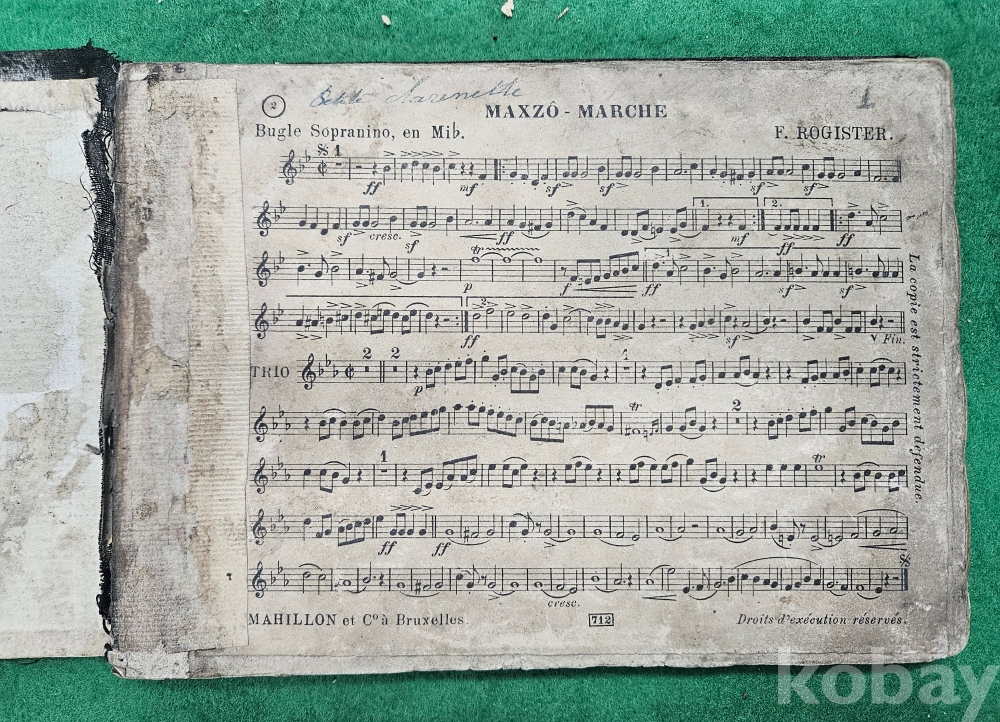 2 Petite Clarinette 1
MAXZÔ - MARCHE
Bugle Sopranino, en Mib. F. ROGISTER.
1
ff mf sf sf sf sf
1. 2.
sf cresc. sf ff mf ff ff
tr
p f ff sf sf
2.
ff sf Fin.
TRIO 2 2 1
p
tr 2
1 tr
ff ff
cresc.
La copie est strictement défendue.
MAHILLON et Cº à Bruxelles. 712 Droits d'exécution réservés.
kobay